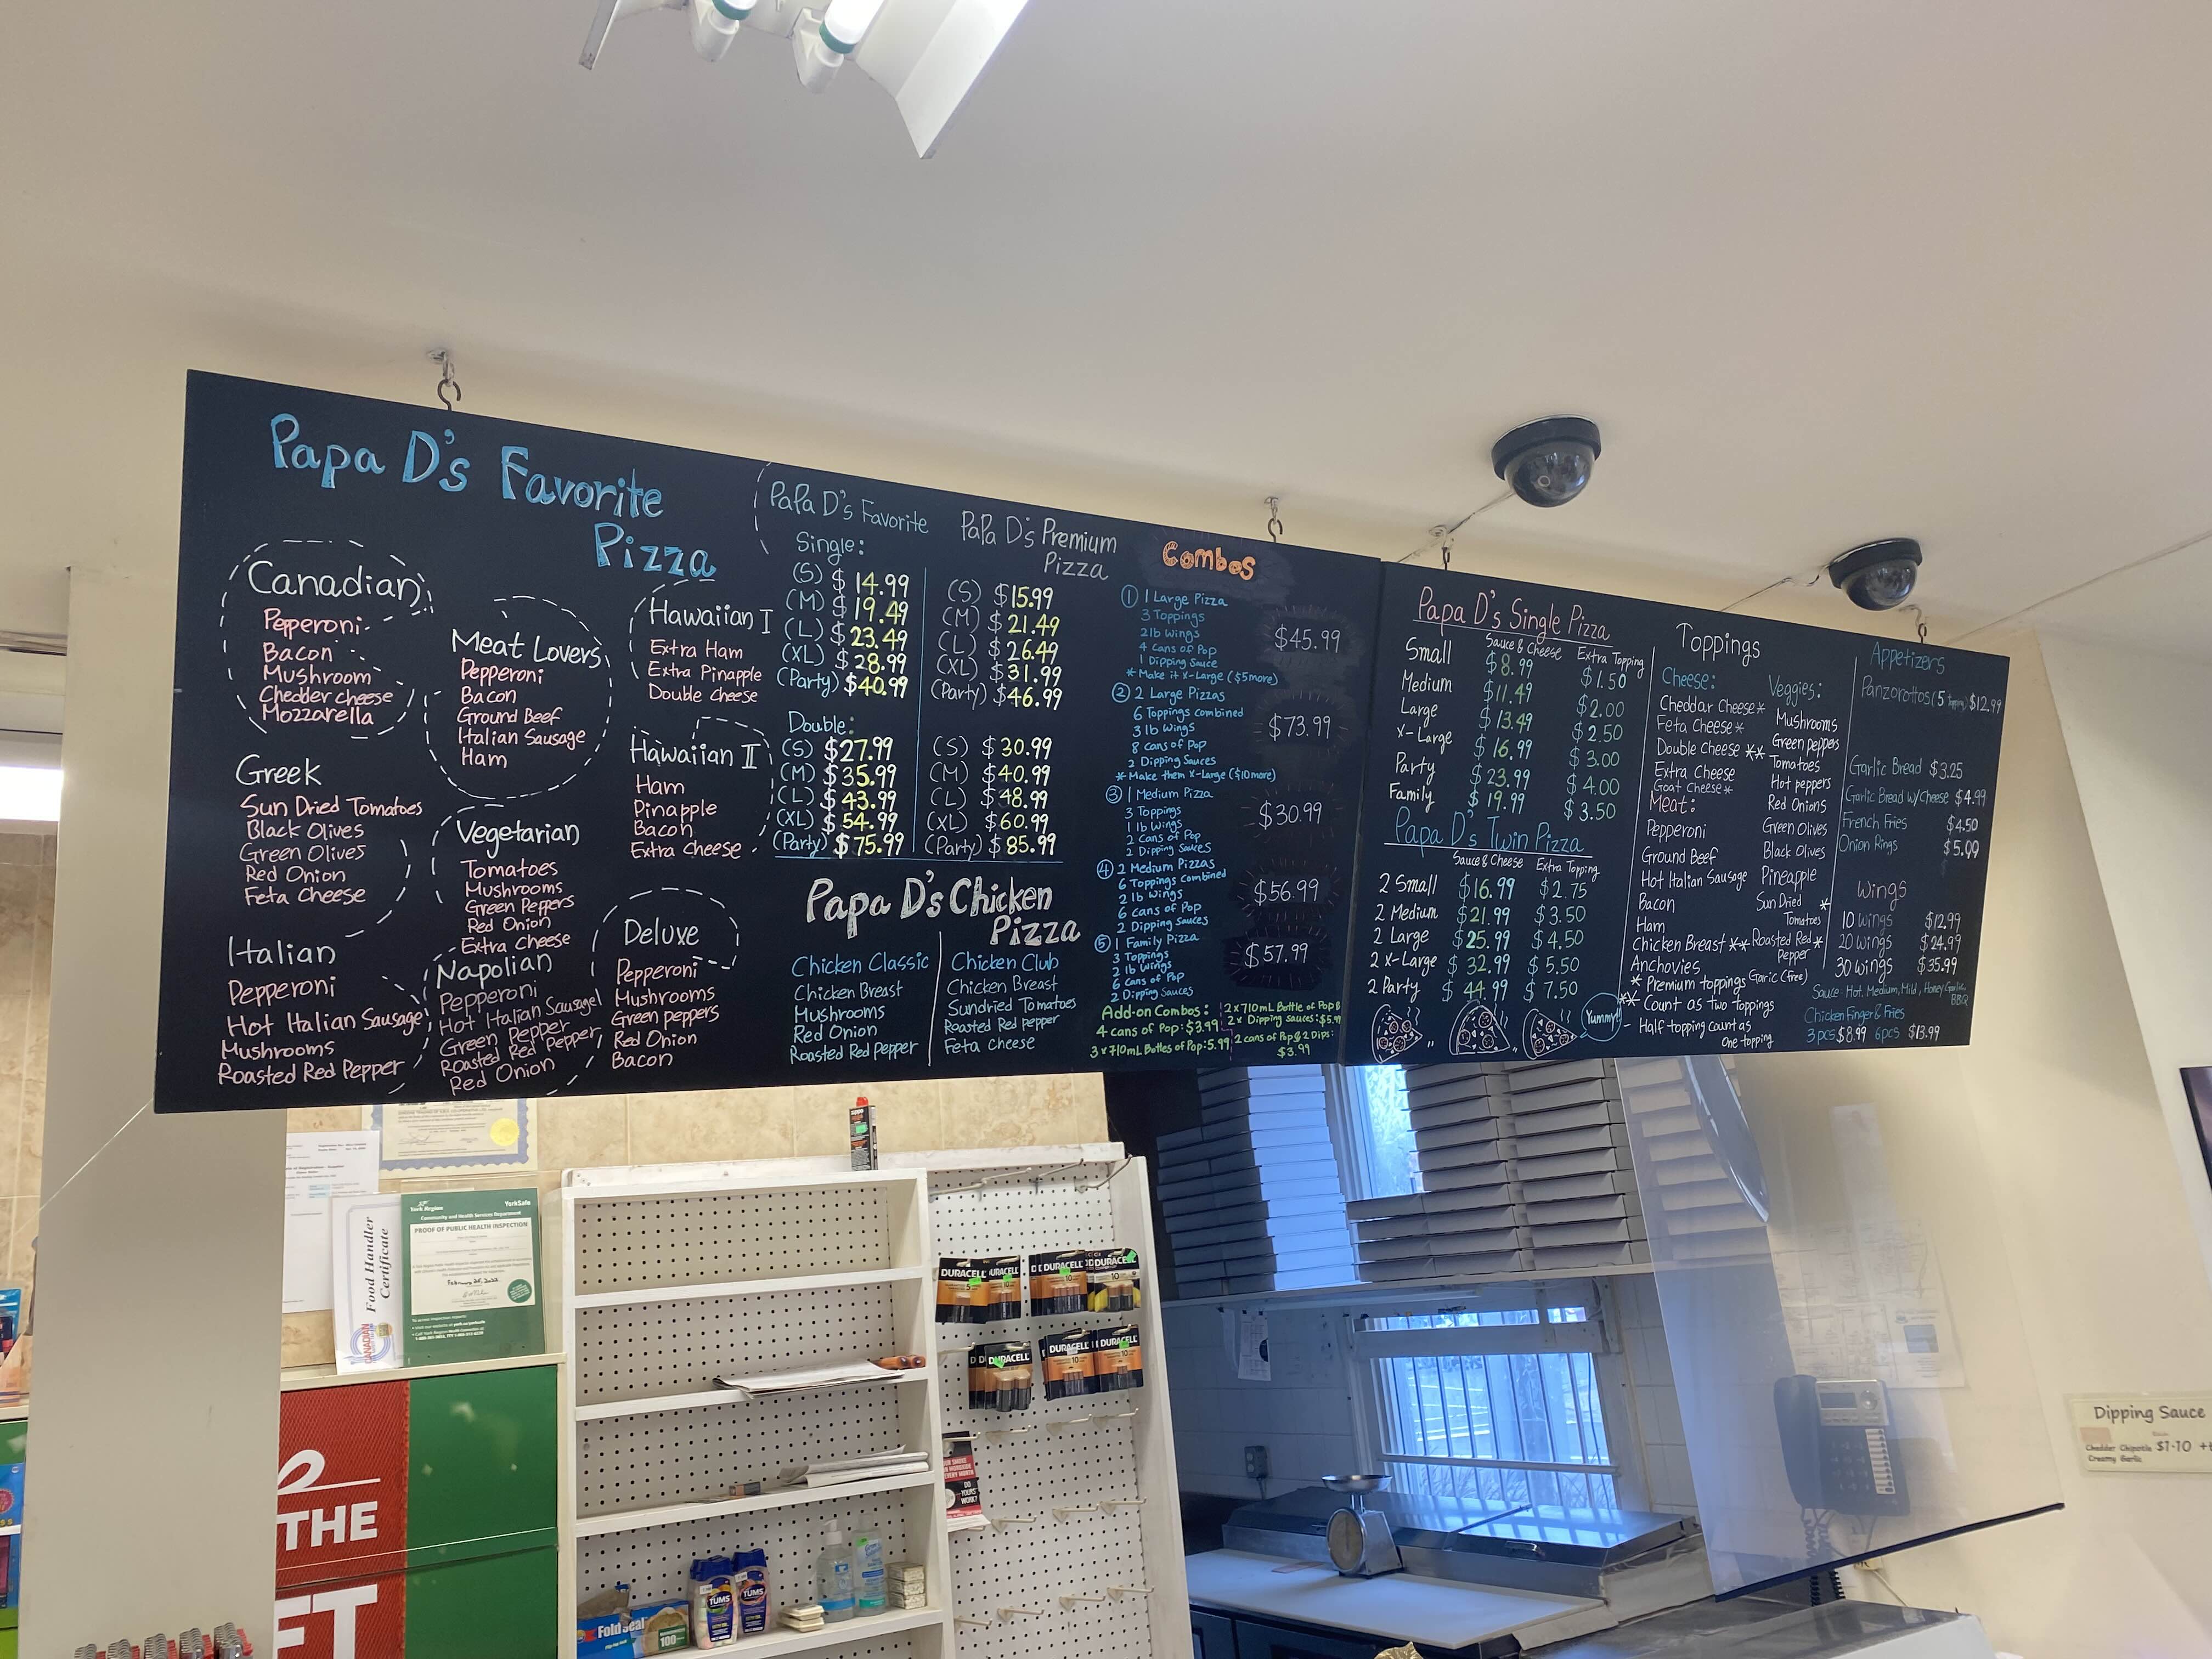 Papa D's Favorite
Pizza
Canadian
Pepperoni
Bacon
Mushroom
Chedder cheese
Mozzarella
Greek
Sun Dried Tomatoes
Black Olives
Green Olives
Red Onion
Feta Cheese
Italian
Pepperoni
Hot Italian Sausage
Mushrooms
Roasted Red Pepper
Meat Lovers
Pepperoni
Bacon
Ground Beef
Italian Sausage
Ham
Vegetarian
Tomatoes
Mushrooms
Green Peppers
Red Onion
Extra Cheese
Napolian
Pepperoni
Hot Italian Sausage
Green Pepper
Roasted Red Pepper
Red Onion
Hawaiian I
Extra Ham
Extra Pinapple
Double Cheese
Hawaiian II
Ham
Pinapple
Bacon
Extra Cheese
Deluxe
Pepperoni
Mushrooms
Green peppers
Red Onion
Bacon
PaPa D's Favorite
Single:
(S) $14.99
(M) $19.49
(L) $23.49
(XL) $28.99
(Party) $40.99
Double:
(S) $27.99
(M) $35.99
(L) $43.99
(XL) $54.99
(Party) $75.99
PaPa D's Premium
Pizza
(S) $15.99
(M) $21.49
(L) $26.49
(XL) $31.99
(Party) $46.99
(S) $30.99
(M) $40.99
(L) $48.99
(XL) $60.99
(Party) $85.99
Papa D's Chicken
Pizza
Chicken Classic
Chicken Breast
Mushrooms
Red Onion
Roasted Red Pepper
Chicken Club
Chicken Breast
Sundried Tomatoes
Roasted Red pepper
Feta Cheese
Combos
① 1 Large Pizza
3 Toppings
2lb Wings
4 Cans of Pop
1 Dipping Sauce
* Make it X-Large ($5more)
$45.99
② 2 Large Pizzas
6 Toppings combined
3 lb Wings
8 Cans of Pop
2 Dipping Sauces
* Make them X-Large ($10more)
$73.99
③ 1 Medium Pizza
3 Toppings
1 lb Wings
2 Cans of Pop
2 Dipping Sauces
$30.99
④ 2 Medium Pizzas
6 Toppings Combined
2 lb Wings
6 Cans of Pop
2 Dipping Sauces
$56.99
⑤ 1 Family Pizza
3 Toppings
2 lb Wings
6 Cans of Pop
2 Dipping Sauces
$57.99
Add-on Combos:
4 cans of Pop: $3.99
3 x 710mL Bottles of Pop: 5.99
2 x 710mL Bottle of Pop &
2 x Dipping Sauces: $5.99
2 cans of Pop & 2 Dips:
$3.99
Papa D's Single Pizza
Sauce & Cheese Extra Topping
Small $8.99 $1.50
Medium $11.49 $2.00
Large $13.49 $2.50
X-Large $16.99 $3.00
Party $23.99 $4.00
Family $19.99 $3.50
Papa D's Twin Pizza
Sauce & Cheese Extra Topping
2 Small $16.99 $2.75
2 Medium $21.99 $3.50
2 Large $25.99 $4.50
2 X-Large $32.99 $5.50
2 Party $44.99 $7.50
Yummy!!
Toppings
Cheese:
Cheddar Cheese*
Feta Cheese*
Double Cheese **
Extra Cheese
Goat Cheese*
Meat:
Pepperoni
Ground Beef
Hot Italian Sausage
Bacon
Ham
Chicken Breast **
Anchovies
Veggies:
Mushrooms
Green peppers
Tomatoes
Hot peppers
Red Onions
Green Olives
Black Olives
Pineapple
Sun Dried
Tomatoes *
Roasted Red *
Pepper
Garic (free)
* Premium toppings
** Count as Two Toppings
- Half topping count as
one topping
Appetizers
Panzorottos (5 topping) $12.99
Garlic Bread $3.25
Garlic Bread w/cheese $4.99
French Fries $4.50
Onion Rings $5.99
Wings
10 wings $12.99
20 wings $24.99
30 wings $35.99
Sauce: Hot, Medium, Mild, Honey Garlic,
BBQ
Chicken Finger & Fries
3 pcs $8.99 6 pcs $13.99
Food Handler
Certificate
CANADIAN
York Region
YorkSafe
Community and Health Services Department
PROOF OF PUBLIC HEALTH INSPECTION
February 25, 2022
THE
FT
DURACELL
DURACELL
DURACELL
DURACELL
DURACELL
TUMS
TUMS
Fold Seal
100
Dipping Sauce
Chedder Chipotle $1.10
Creamy Garlic